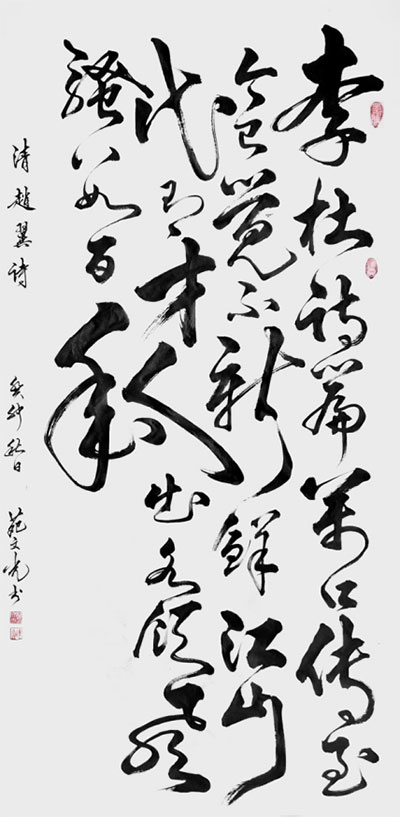 李杜诗篇萬口传至
今已觉不新鲜江山
代有才人出各领风
骚数百年
清趙翼诗 癸卯秋日 文书